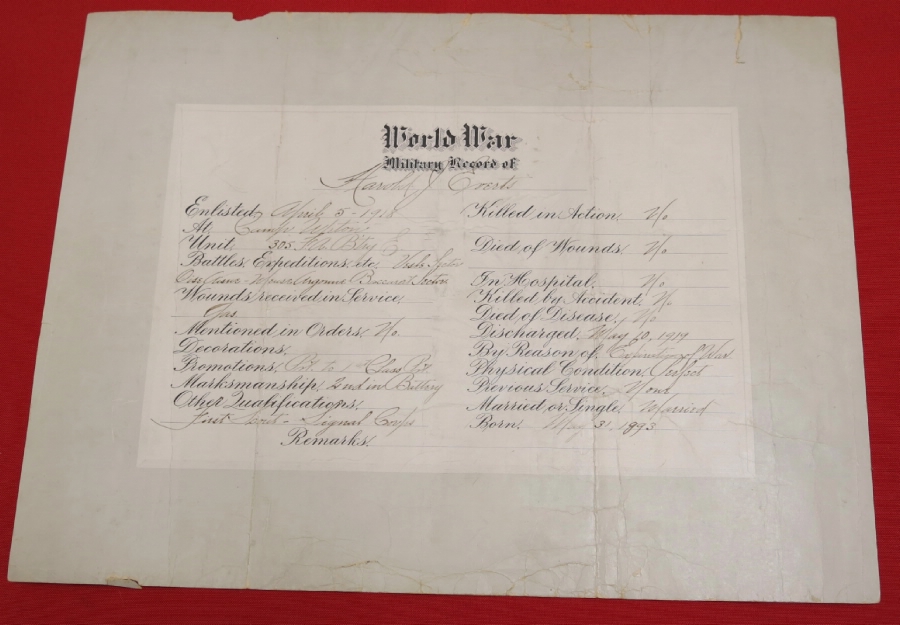 World War
Military Record of
Harold J Everts
Enlisted, April 5-1918
At, Camp Upton
Unit, 305 F.A. Btry
Battles, Expeditions, etc, Vesle Sector
Oise Aisne - Meuse Argonne Baccarat Sector
Wounds received in Service,
Gas
Mentioned in Orders, No.
Decorations.
Promotions, Pvt. to 1st Class Pvt.
Marksmanship, 2nd in Battery
Other Qualifications,
Signal Corps
Remarks,
Killed in Action, No
Died of Wounds, No
In Hospital, No
Killed by Accident, No
Died of Disease, No.
Discharged, May 10, 1919
By Reason of, of War
Physical Condition, Perfect
Previous Service, None
Married or Single, Married
Born, May 31, 1893